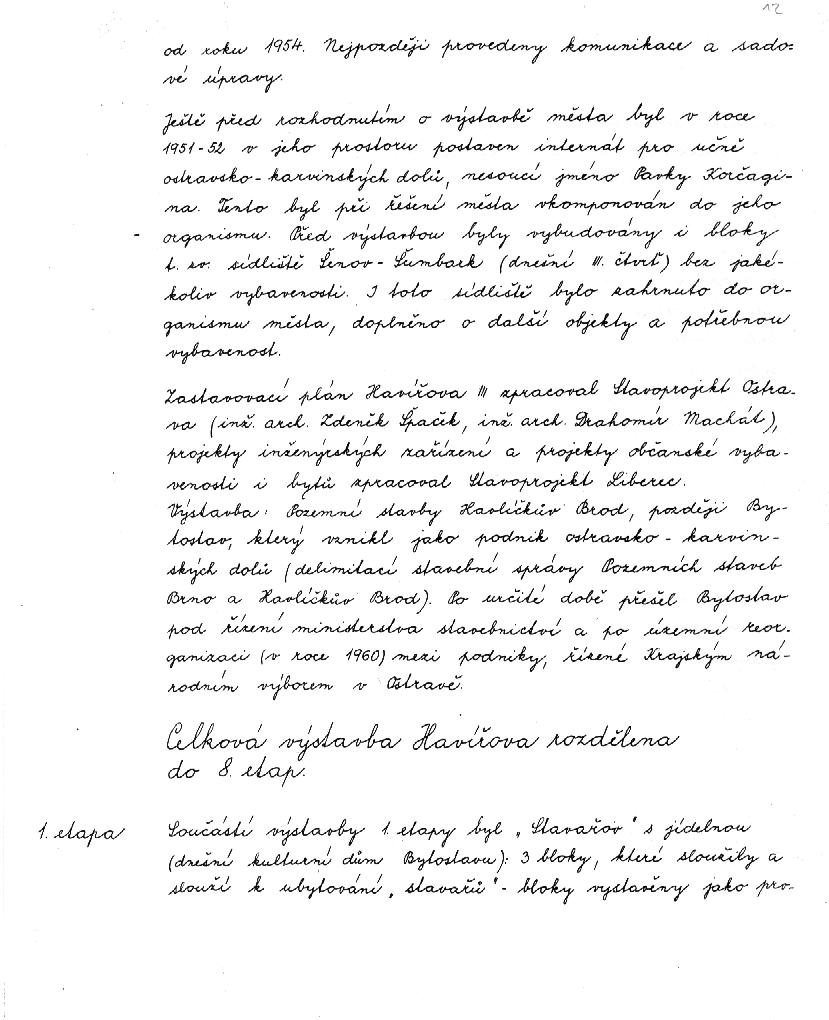 12
od roku 1954. Nejpozději provedeny komunikace a sado-
vé úpravy.
Ještě před rozhodnutím o výstavbě města byl v roce
1951-52 v jeho prostoru postaven internát pro učně
ostravsko-karvinských dolů, nesoucí jméno Pavky Korčagi-
na. Tento byl při řešení města vkomponován do jeho
organismu. Před výstavbou byly vybudovány i bloky
t. zv. sídliště Šenov-Šumbark (dnešní III. čtvrť) bez jaké-
koliv vybavenosti. I toto sídliště bylo zahrnuto do or-
ganismu města, doplněno o další objekty a potřebnou
vybavenost.
Zastavovací plán Havířova III zpracoval Stavoprojekt Ostra-
va (inž. arch. Zdeněk Špaček, inž. arch. Drahomír Machát),
projekty inženýrských zařízení a projekty občanské vyba-
venosti i bytů zpracoval Stavoprojekt Liberec.
Výstavba: Pozemní stavby Havlíčkův Brod, později By-
tostav, který vznikl jako podnik ostravsko-karvin-
ských dolů (delimitací stavební správy Pozemních staveb
Brno a Havlíčkův Brod). Po určité době přešel Bytostav
pod řízení ministerstva stavebnictví a po územní reor-
ganizaci (v roce 1960) mezi podniky, řízené Krajským ná-
rodním výborem v Ostravě.
Celková výstavba Havířova rozdělena
do 8. etap.
1. etapa
Součástí výstavby 1. etapy byl „Stavařov" s jídelnou
(dnešní kulturní dům Bytostavu): 3 bloky, které sloužily a
slouží k ubytování „stavařů" - bloky vystavěny jako pro-